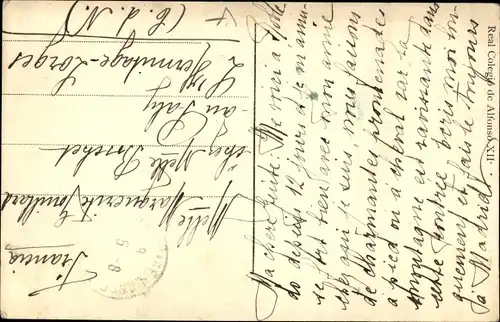 Real Colegio de Alfonso XII
Ma chère tante. Me voici à l'Esco
do depuis 12 jours et je m'amu-
se fort bien avec mon amie
chez qui je suis, nous faisons
de charmantes promenades
à pied ou à cheval car la
montagne est ravissante dans
cette contrée. Écris moi lon-
guement et fais le toujours
à Madrid
Melle Marguerite
chez Melle Brochet
au
L'Hermitage-Lorges
(C. d. N.)
Francia